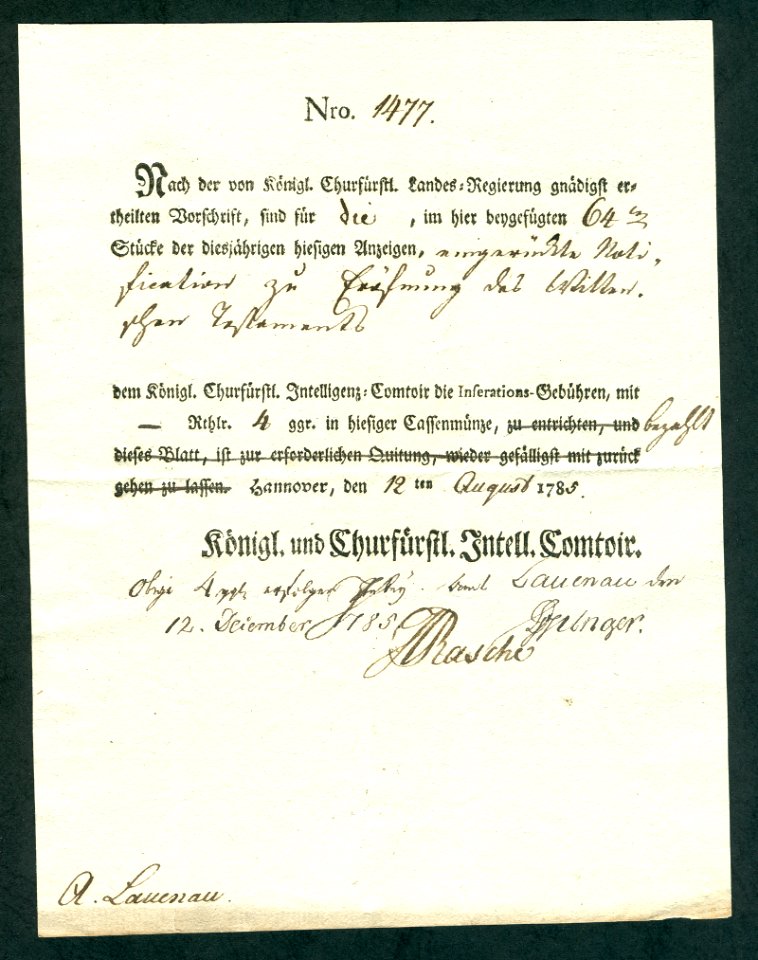 Nro. 1477.
Nach der von Königl. Churfürstl. Landes-Regierung gnädigst er-
theilten Vorschrift, sind für die, im hier beygefügten 64
Stücke der diesjährigen hiesigen Anzeigen, eingerückte Noti-
fication zu Eröfnung des Witten.
schen Testaments
dem Königl. Churfürstl. Intelligenz-Comtoir die Inserations-Gebühren, mit
— Rthlr. 4 ggr. in hiesiger Cassenmünze, zu entrichten, und bezahlt
dieses Blatt, ist zur erforderlichen Quitung, wieder gefälligst mit zurück
gehen zu lassen. Hannover, den 12ten August 1785.
Königl. und Churfürstl. Intell. Comtoir.
Obige 4 ggr Amt Lauenau den
12. December 1785
Rasche
A. Lauenau.